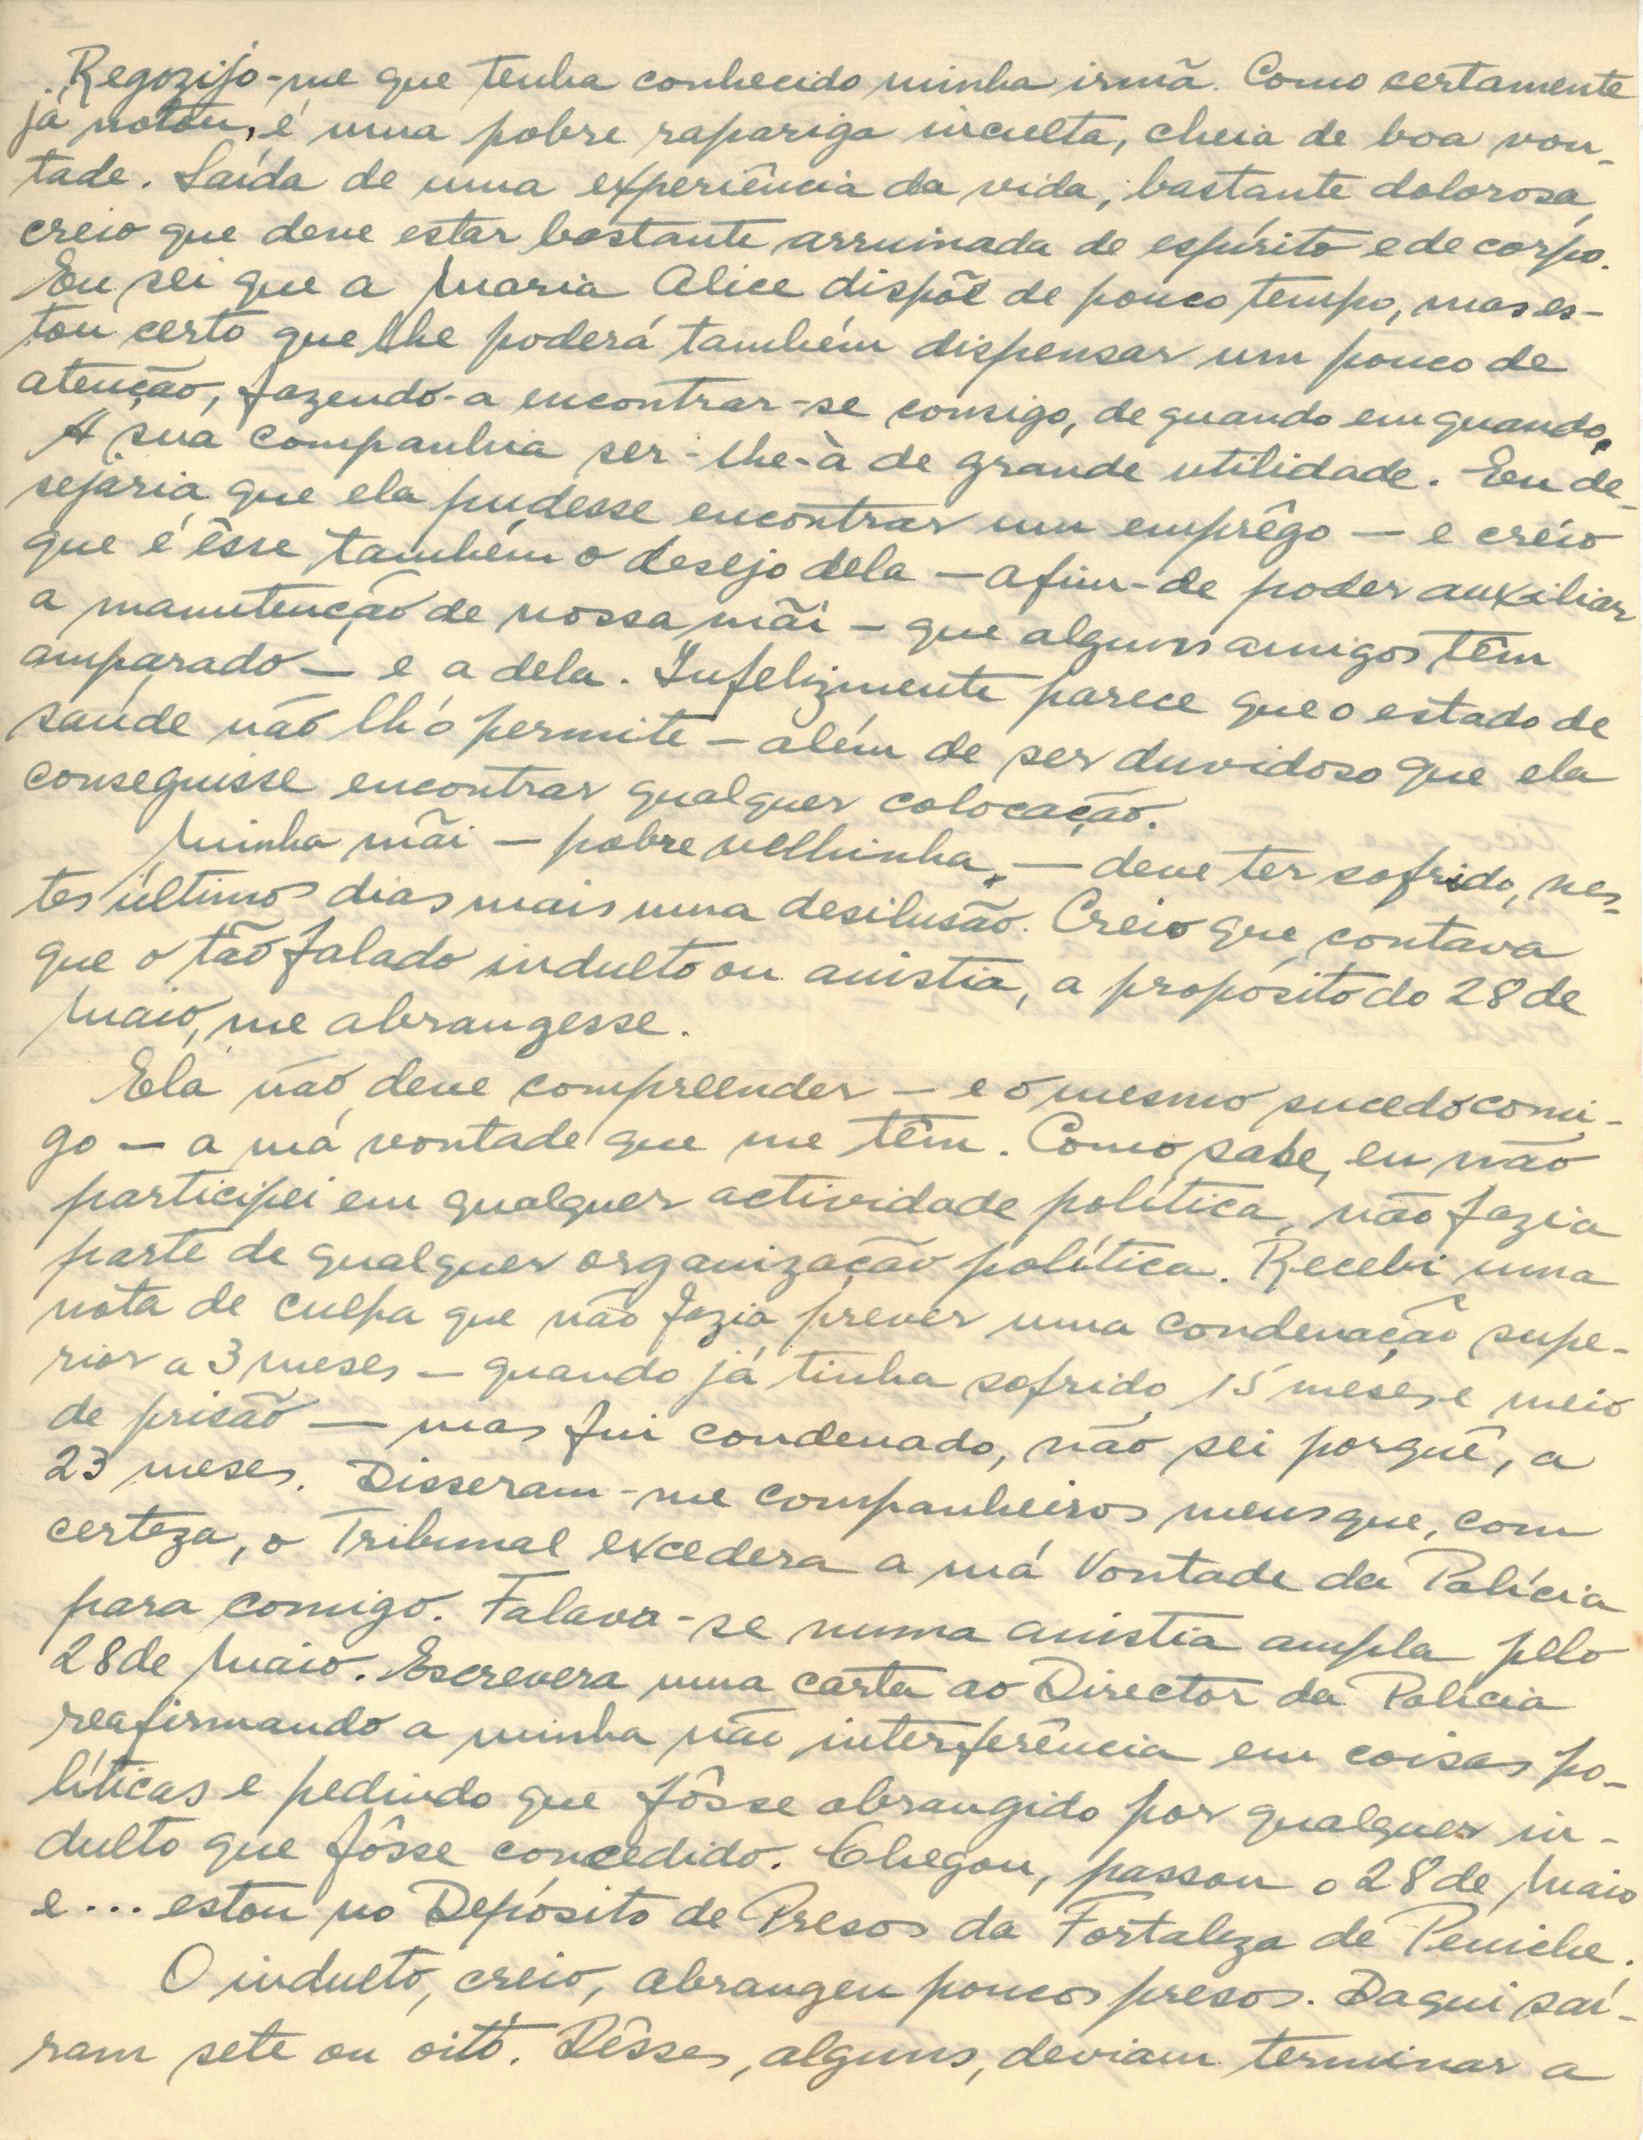 Regozijo-me que tenha conhecido minha irmã. Como certamente
já notou, é uma pobre rapariga inculta, cheia de boa von-
tade. Saída de uma experiência da vida, bastante dolorosa,
creio que deve estar bastante arruinada de espírito e de corpo.
Eu sei que a Maria Alice dispõe de pouco tempo, mas es-
tou certo que lhe poderá também dispensar um pouco de
atenção, fazendo-a encontrar-se consigo, de quando em quando.
A sua companhia ser-lhe-à de grande utilidade. Eu de-
sejaria que ela pudesse encontrar um emprêgo — e creio
que é êsse também o desejo dela — afim-de poder auxiliar
a manutenção de nossa mãi — que alguns amigos têm
amparado — e a dela. Infelizmente parece que o estado de
saúde não lh'o permite — além de ser duvidoso que ela
conseguisse encontrar qualquer colocação.
Minha mãi — pobre velhinha — deve ter sofrido, nes-
tes últimos dias mais uma desilusão. Creio que contava
que o tão falado indulto ou anistia, a propósito do 28 de
Maio, me abrangesse.
Ela não deve compreender — e o mesmo sucede comi-
go — a má vontade que me têm. Como sabe, eu não
participei em qualquer actividade política, não fazia
parte de qualquer organização política. Recebi uma
nota de culpa que não fazia prever uma condenação supe-
rior a 3 meses — quando já tinha sofrido 15 meses e meio
de prisão — mas fui condenado, não sei porquê, a
23 meses. Disseram-me companheiros meus que, com
certeza, o Tribunal excedera a má vontade da Polícia
para comigo. Falava-se numa anistia ampla pelo
28 de Maio. Escrevera uma carta ao Director da Polícia
reafirmando a minha não interferência em coisas po-
líticas e pedindo que fôsse abrangido por qualquer in-
dulto que fôsse concedido. Chegou, passou o 28 de Maio
e... estou no Depósito de Presos da Fortaleza de Peniche.
O indulto, creio, abrangeu poucos presos. Daqui saí-
ram sete ou oito. Dêsses, alguns, deviam terminar a